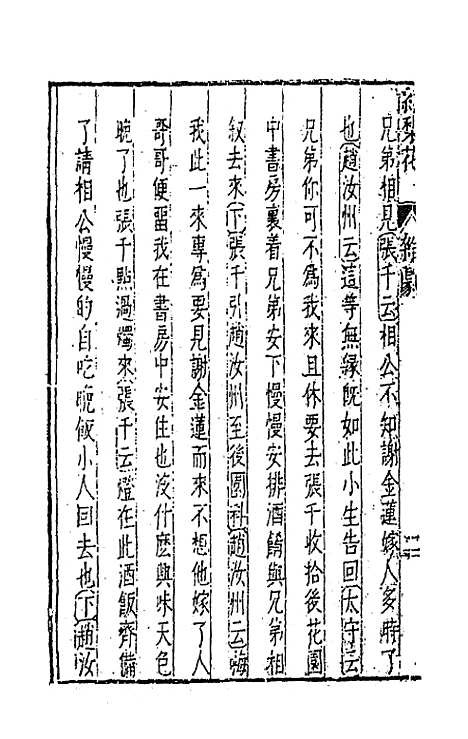 梨花 雜劇
兄弟相見張千云相公不知謝金蓮嫁人多時了
也趙汝州云這等無緣旣如此小生告回太守云
兄弟你可不爲我來且休要去張千收拾後花園
中書房裏着兄弟安下慢慢安排酒餚與兄弟相
叙去來下張千引趙汝州至後園科趙汝州云嗨
我此一來專爲要見謝金蓮而來不想他嫁了人
哥哥便留我在書房中安住也沒什麽興味天色
晚了也張千點過燭來張千云燈在此酒飯齊備
了請相公慢慢的自吃晚飯小人回去也下趙汝